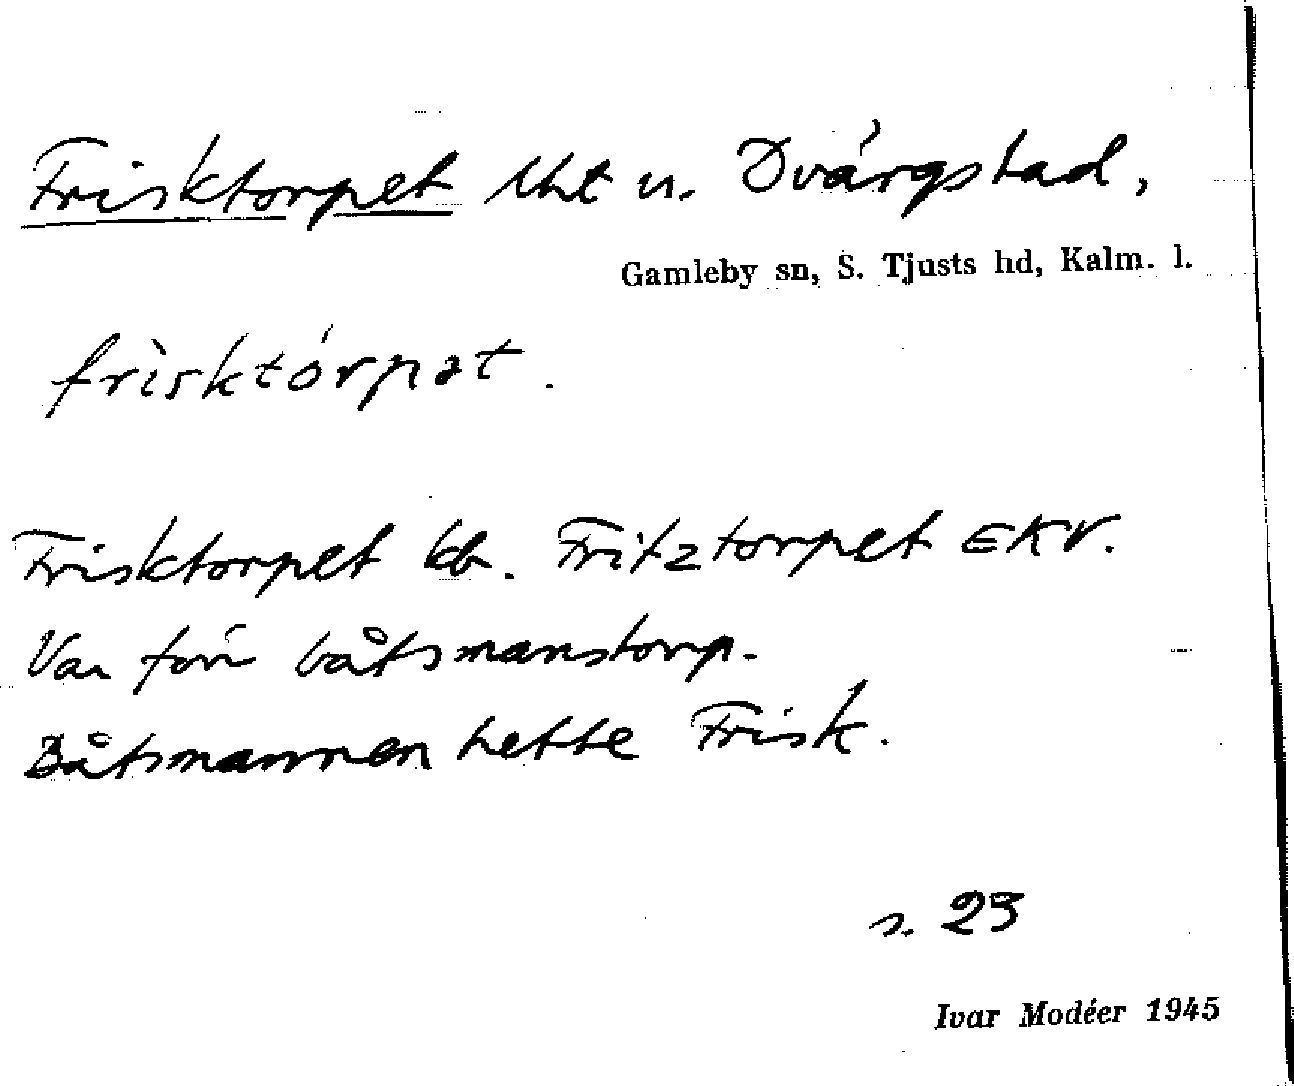 Frisktorpet lht u. Dvärgstad,
Gamleby sn, S. Tjusts hd, Kalm. l.
frìsktórpət.
Frisktorpet kb. Fritztorpet EKV.
Var förr båtsmanstorp.
Båtsmannen hette Frisk.
s. 23
Ivar Modéer 1945